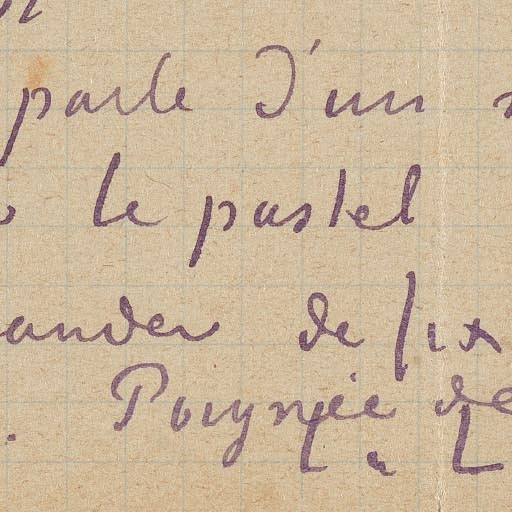 parle d'un
le pastel
ander de fix
Poignée de